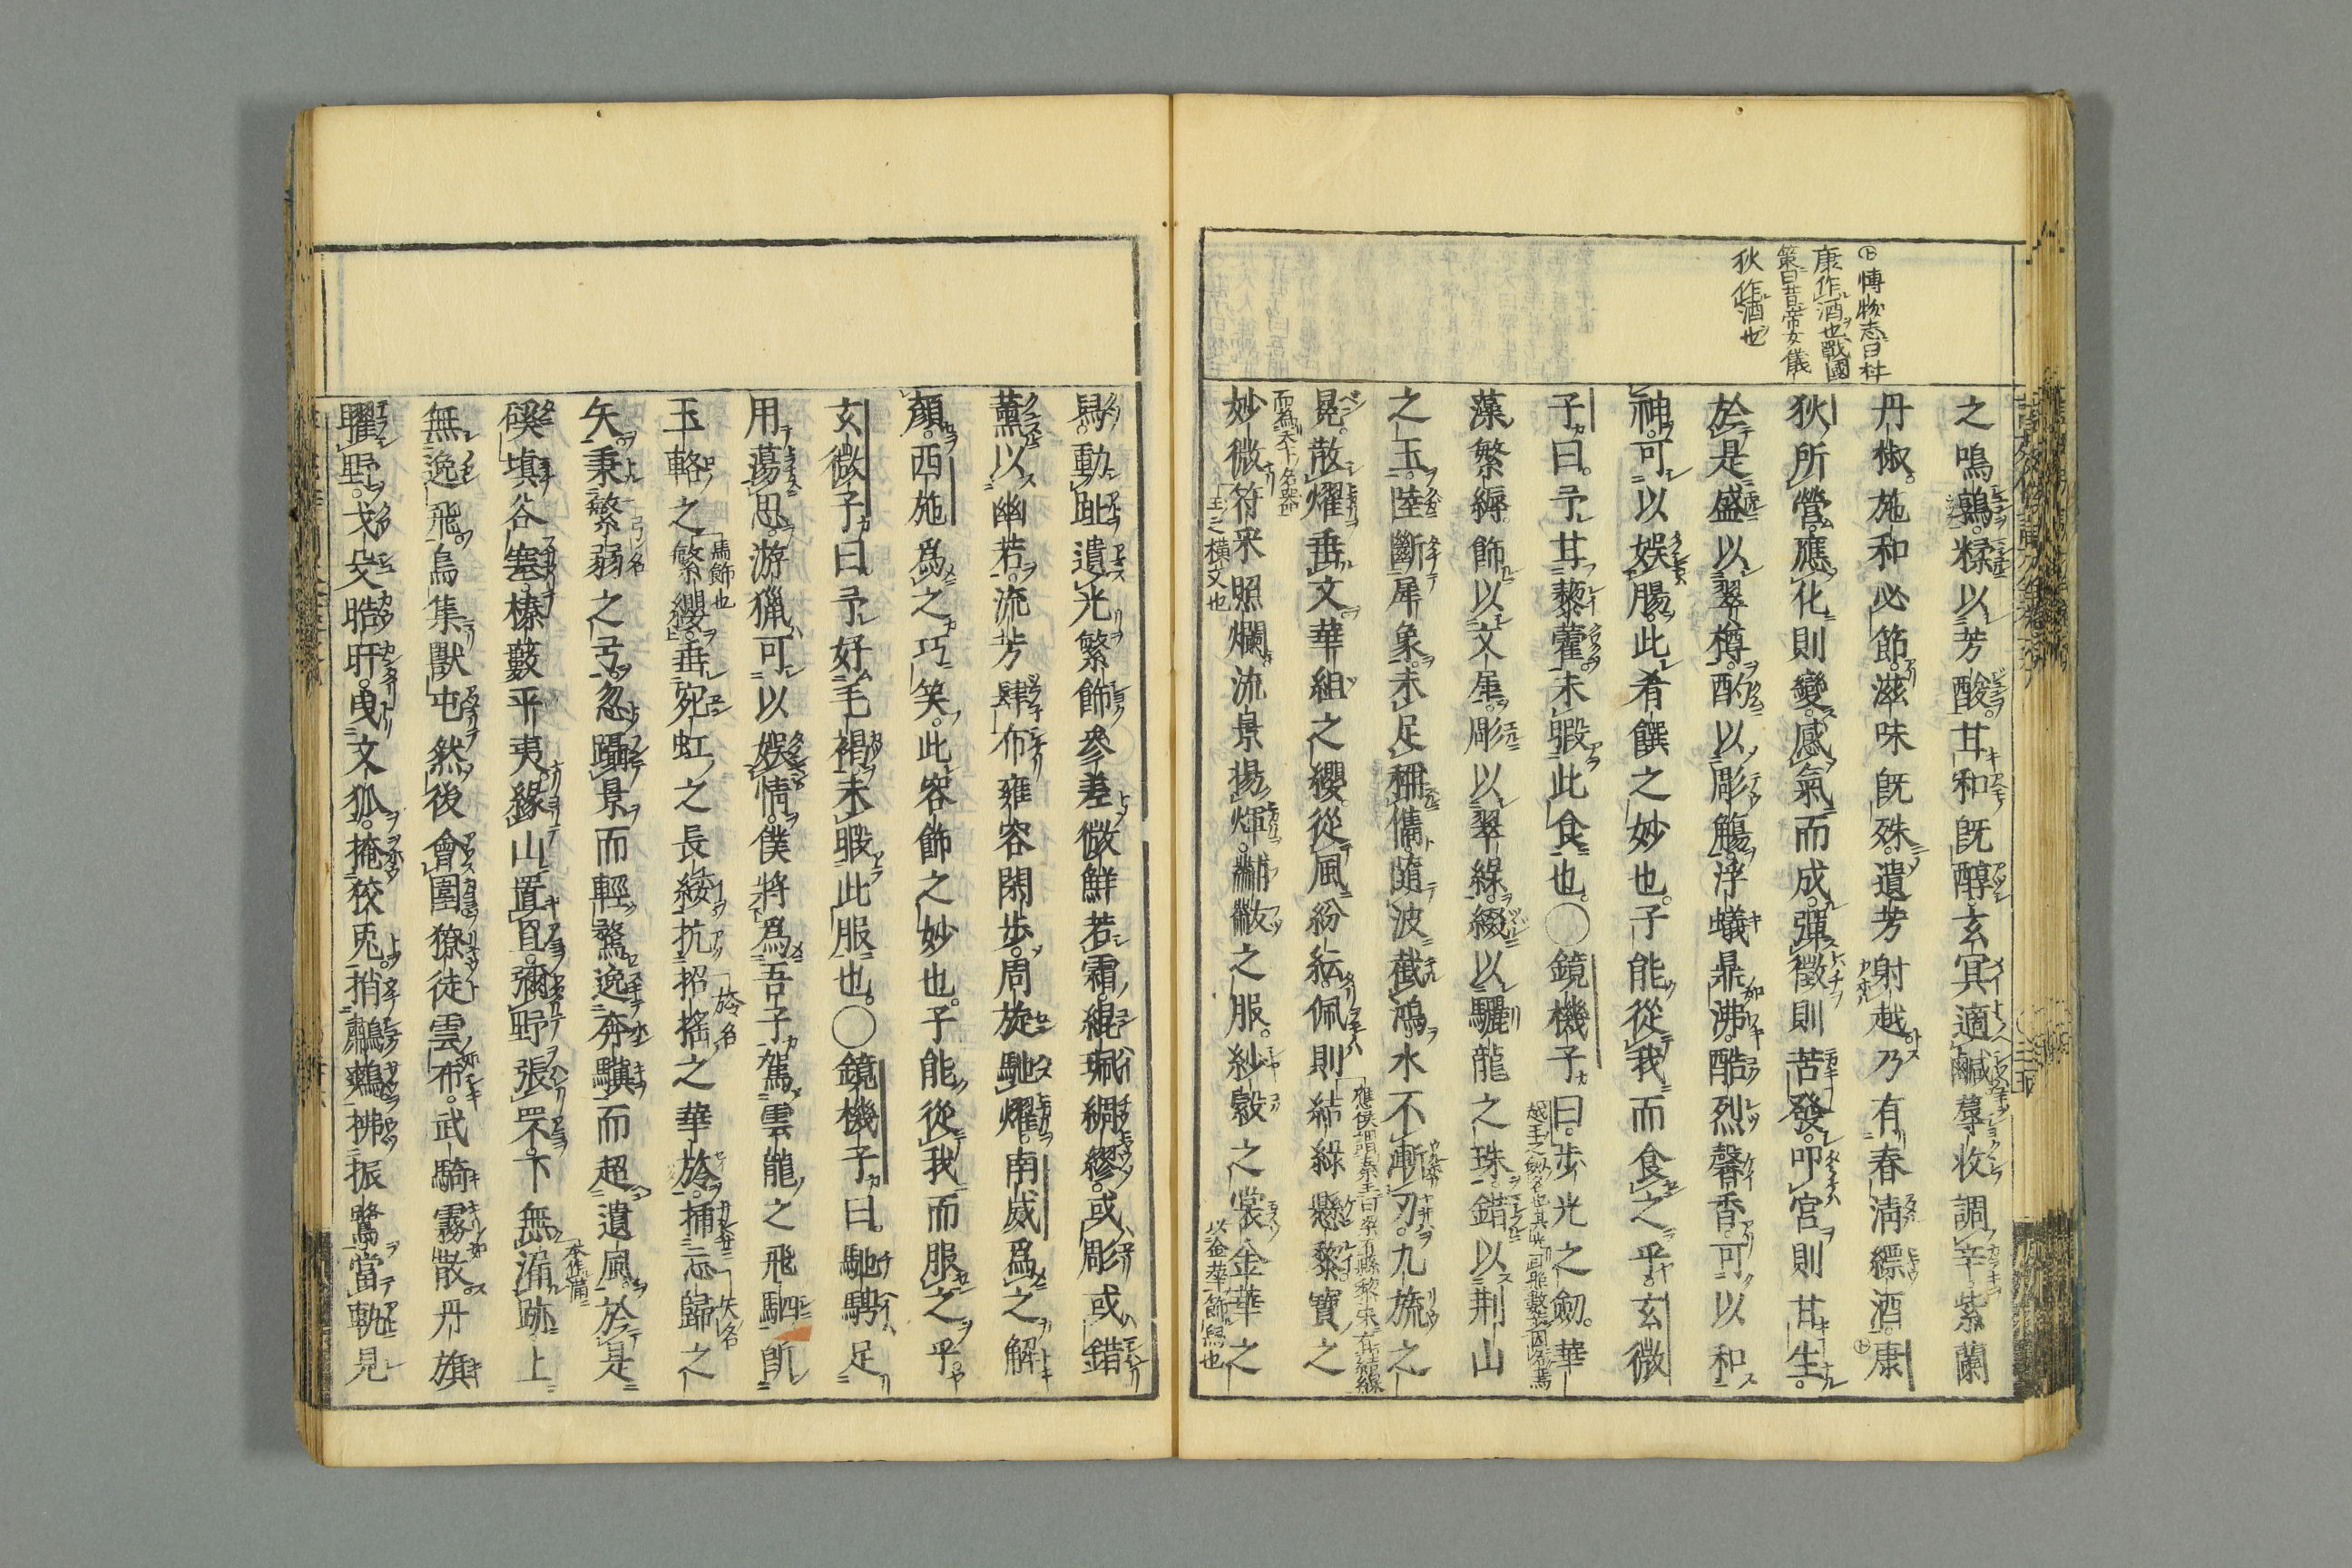 博物志曰杜
康作酒也戰國
策曰昔帝女儀
狄作酒也
之鳴鶉。糅以芳酸。甘和既醇。玄冥適鹹蓐收調辛紫蘭
丹椒。施和必節。滋味既殊。遺芳射越。乃有春清縹酒。康
狄所營。應化則變。感氣而成。彈徵則苦發。叩宮則甘生。
於是盛以翠樽。酌以彫觴。浮蟻鼎沸。酷烈馨香。可以和
神。可以娛腸。此肴饌之妙也。子能從我而食之乎。玄微
子曰。予甘藜藿未暇此食也。◯鏡機子曰。步光之劒。華
藻繁縟。飾以文犀。彫以翠綠。綴以驪龍之珠。錯以荆山
之玉。陸斷犀象。未足稱儁。隨波截鴻。水不漸刃。九旒之
冕。散燿垂文。華組之纓。從風紛紜。佩則結綠懸黎。寶之
而爲天下名器
妙微。符采照爛流景揚煇。黼黻之服。紗縠之裳。金華之
玉之橫文也
以金華飾舄也
舄。動趾遺光。繁飾參差。微鮮若霜。緄珮綢繆。或彫或錯
薰以幽若。流芳肆布。雍容閑步。周旋馳燿。南威爲之解
顏。西施爲之巧笑。此容飾之妙也。子能從我而服之乎。
玄微子曰。予好毛褐未暇此服也。◯鏡機子曰。馳騁足
用蕩思。游獵可以娛情。僕將爲吾子駕雲龍之飛駟。飾
馬飾也
旍名
矢名
玉輅之繁纓。垂宛虹之長緌。抗招搖之華旍。插忘歸之
弓名
矢。秉繁弱之弓。忽躡景而輕騖。逸奔驥而超遺風。於是
本作滿
磎塡谷塞。榛藪平夷。緣山置罝。彌野張罘。下無漏跡上
無逸飛。鳥集獸屯。然後會圍。獠徒雲布。武騎霧散。丹旗
燿野。戈殳晧旰。曳文狐。掩狡兔。捎鷫鷞。拂振鷺。當軌見